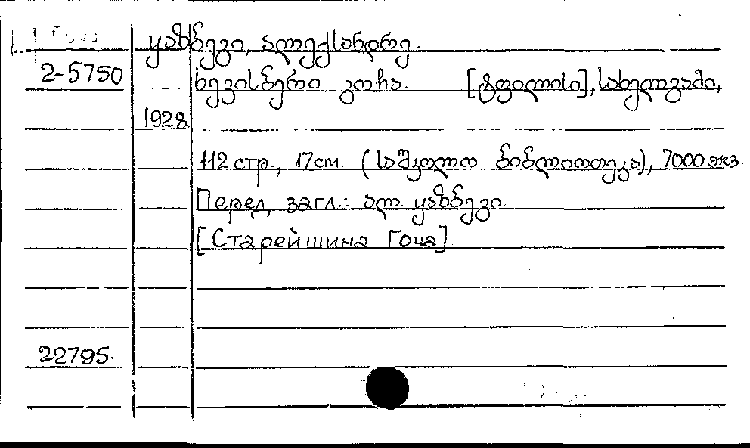 ყაზბეგი, ალექსანდრე.
2-5750 ხევისბერი გოჩა. [ტფილისი], სახელგამი,
1928.
112 стр., 17см. (საშკოლო ბიბლიოთეკა), 7000 экз.
Перед загл.: ალ. ყაზბეგი.
[Старейшина Гоча]
22795.